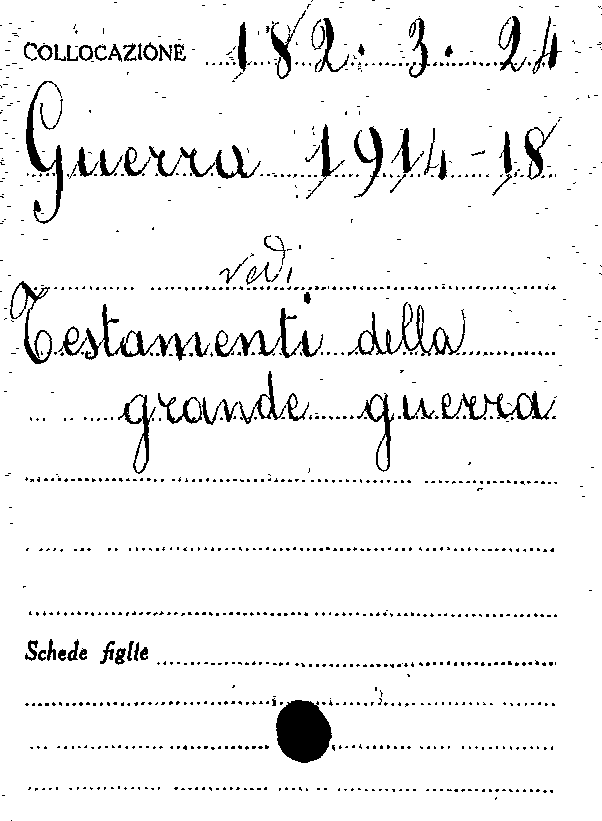 COLLOCAZIONE 182. 3. 24
Guerra 1914-18
vedi
Testamenti della
grande guerra
Schede figlie